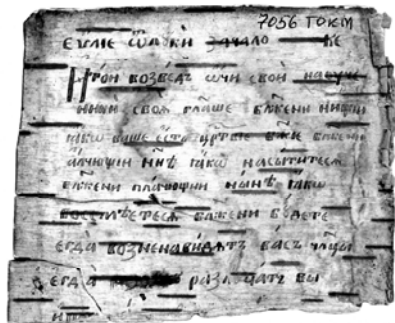 7056 ТОКМ
Еѵ҃лїе ѿ лꙋки зачало
ѡчи свои на ꙋче
глаше блжени нищїи
ꙗкѡ ваше есть црⷭтвїе бж҃їе блжени
алчющїи нн҃ѣ ꙗкѡ насытитесѧ
блжени плачющїи нынѣ ꙗкѡ
восмѣетесѧ блжени бꙋдете
егда возненавидѧтъ васъ члцы
егда разлꙋчатъ вы